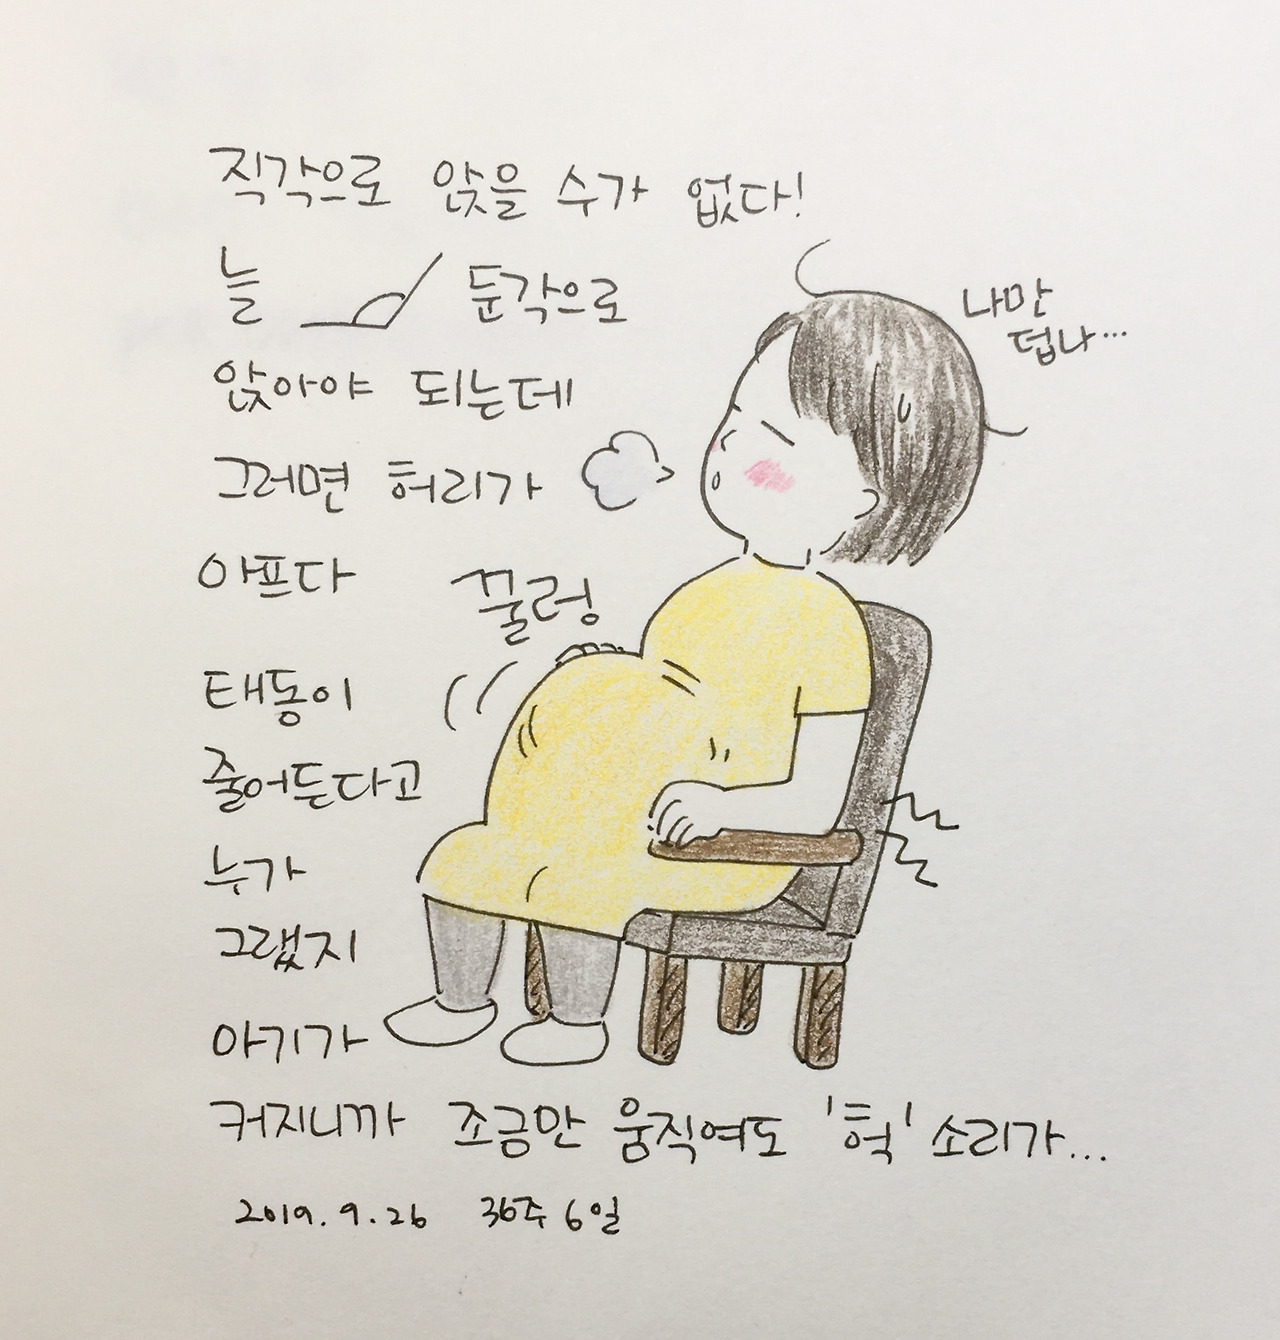 직각으로 앉을 수가 없다!
늘 둔각으로
앉아야 되는데
그러면 허리가
아프다
나만
덥나...
꿀렁
태동이
줄어든다고
누가
그랬지
아기가
커지니까 조금만 움직여도 '헉' 소리가...
2019. 9. 26 36주 6일